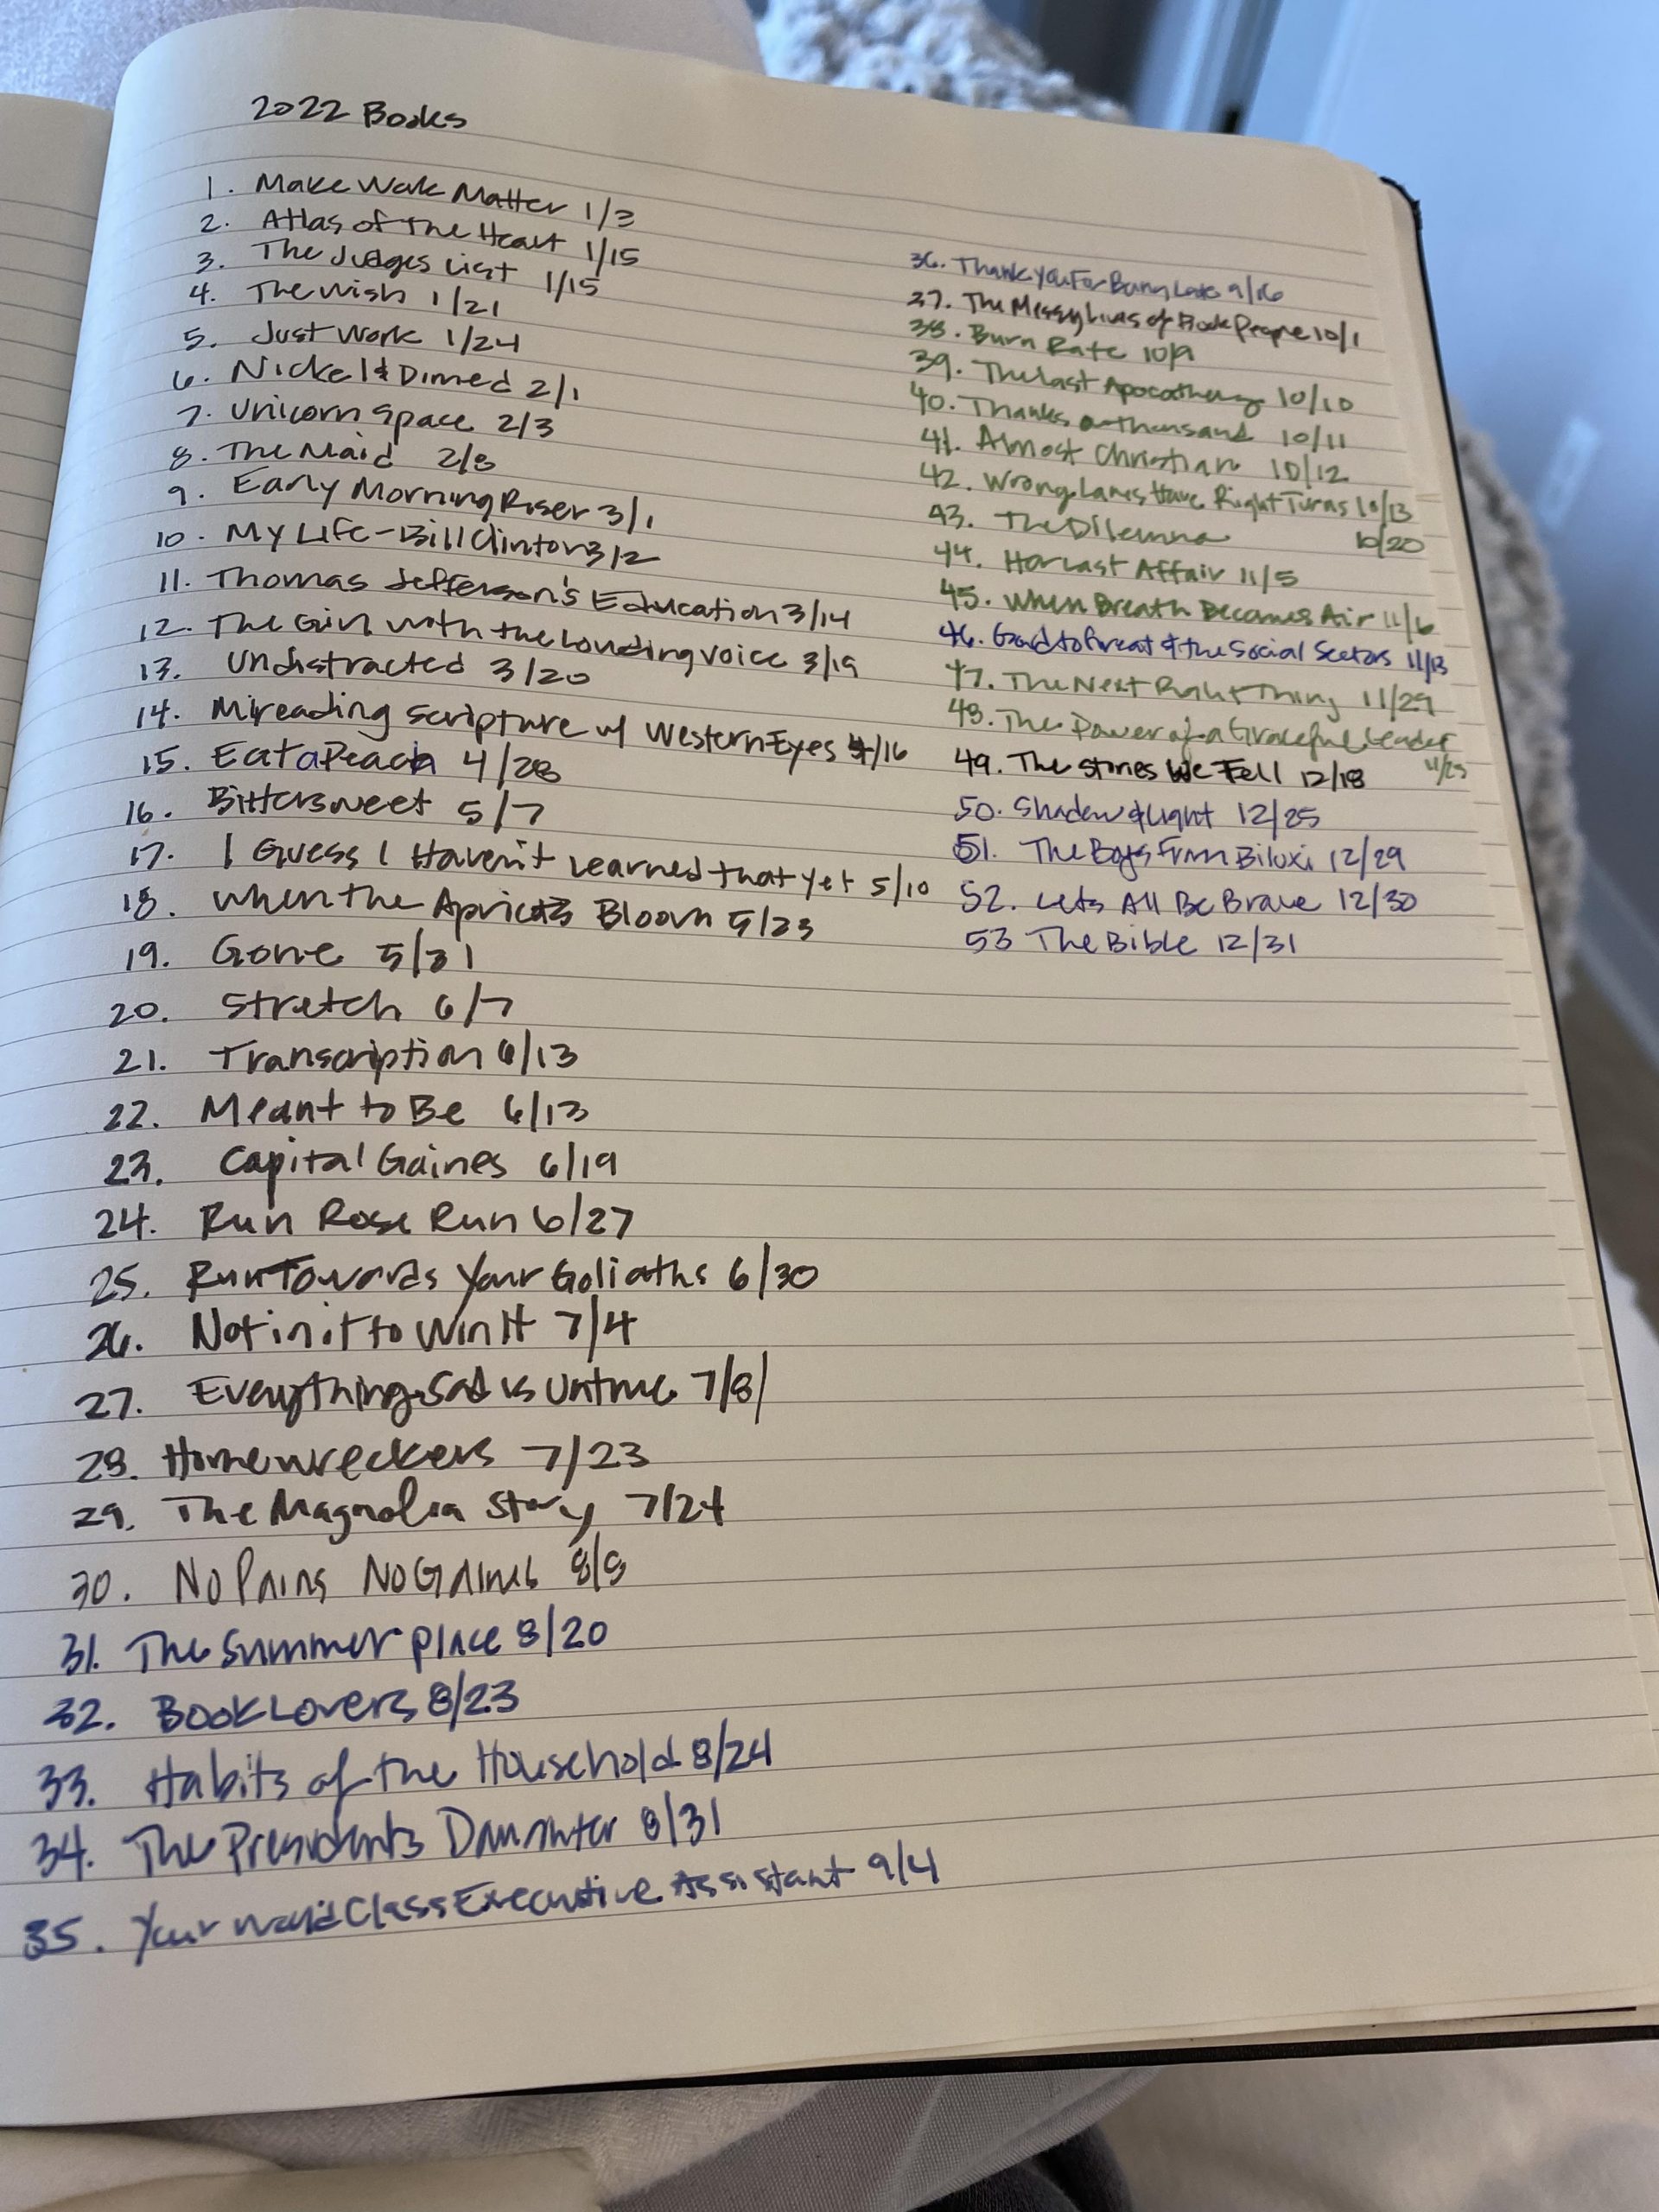 2022 Books
1. Make Work Matter 1/3
2. Atlas of the Heart 1/15
3. The Judges List 1/15
4. The Wish 1/21
5. Just Work 1/24
6. Nickel & Dimed 2/1
7. Unicorn Space 2/3
8. The Maid 2/8
9. Early Morning Riser 3/1
10. My Life - Bill Clinton 3/2
11. Thomas Jefferson's Education 3/14
12. The Girl with the Louding Voice 3/19
13. Undistracted 3/20
14. Mireading Scripture w/ Western Eyes 4/16
15. Eat a Peach 4/28
16. Bittersweet 5/7
17. I Guess I Haven't Learned that Yet 5/10
18. When the Apricots Bloom 5/23
19. Gone 5/31
20. Stretch 6/7
21. Transcription 6/13
22. Meant to Be 6/13
23. Capital Gaines 6/19
24. Run Rose Run 6/27
25. Run Towards Your Goliaths 6/30
26. Not in it to Win It 7/4
27. Everything Sad is Untrue 7/8
28. Homewreckers 7/23
29. The Magnolia Story 7/24
30. No Pains No Gaines 8/8
31. The Summer Place 8/20
32. Book Lovers 8/23
33. Habits of the Household 8/24
34. The Presidents Daughter 8/31
35. Your World Class Executive Assistant 9/4
36. Thank You For Being Late 9/16
37. The Messy Lives of Book People 10/1
38. Burn Rate 10/9
39. The Last Apocathery 10/10
40. Thanks a Thousand 10/11
41. Almost Christian 10/12
42. Wrong Lanes Have Right Turns 10/13
43. The Dilemma 10/20
44. Her Last Affair 11/5
45. When Breath Becomes Air 11/6
46. Good to Great & the Social Sectors 11/13
47. The Next Right Thing 11/29
48. The Power of a Graceful Leader
11/25
49. The Stories We Tell 12/18
50. Shadow & Light 12/25
51. The Boys From Biloxi 12/29
52. Lets All Be Brave 12/30
53 The Bible 12/31